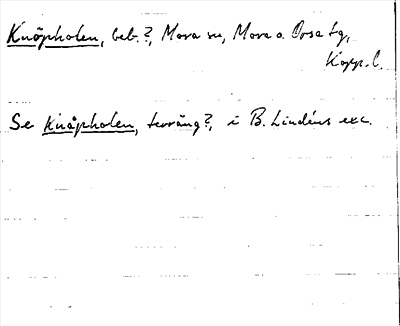 Knöpholen, beb.?, Mora sn, Mora o. Orsa tg,
Kopp. l.
Se Knåpholen, terräng?, i B. Lindéns exc.